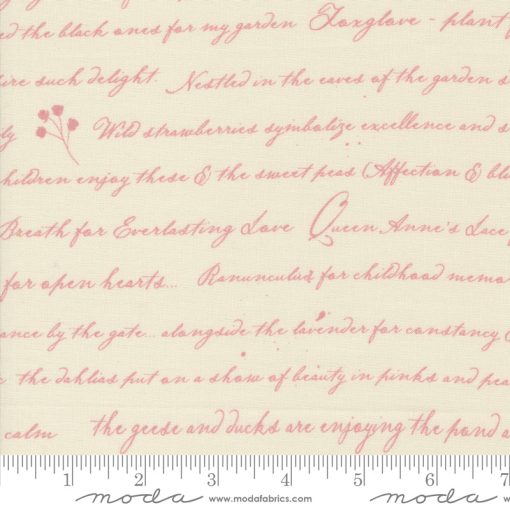 ed the black ones for my garden Foxglove - plant f
ire such delight. Nestled in the eaves of the garden s
ly Wild strawberries symbolize excellence and s
hildren enjoy these & the sweet peas (Affection & bl
Breath for Everlasting Love Queen Anne's Lace
for open hearts... Ranunculus for childhood memo
ance by the gate... alongside the lavender for constancy
the dahlias put on a show of beauty in pinks and pea
calm the geese and ducks are enjoying the pond a
1 2 3 4 5 6 7
moda www.modafabrics.com moda